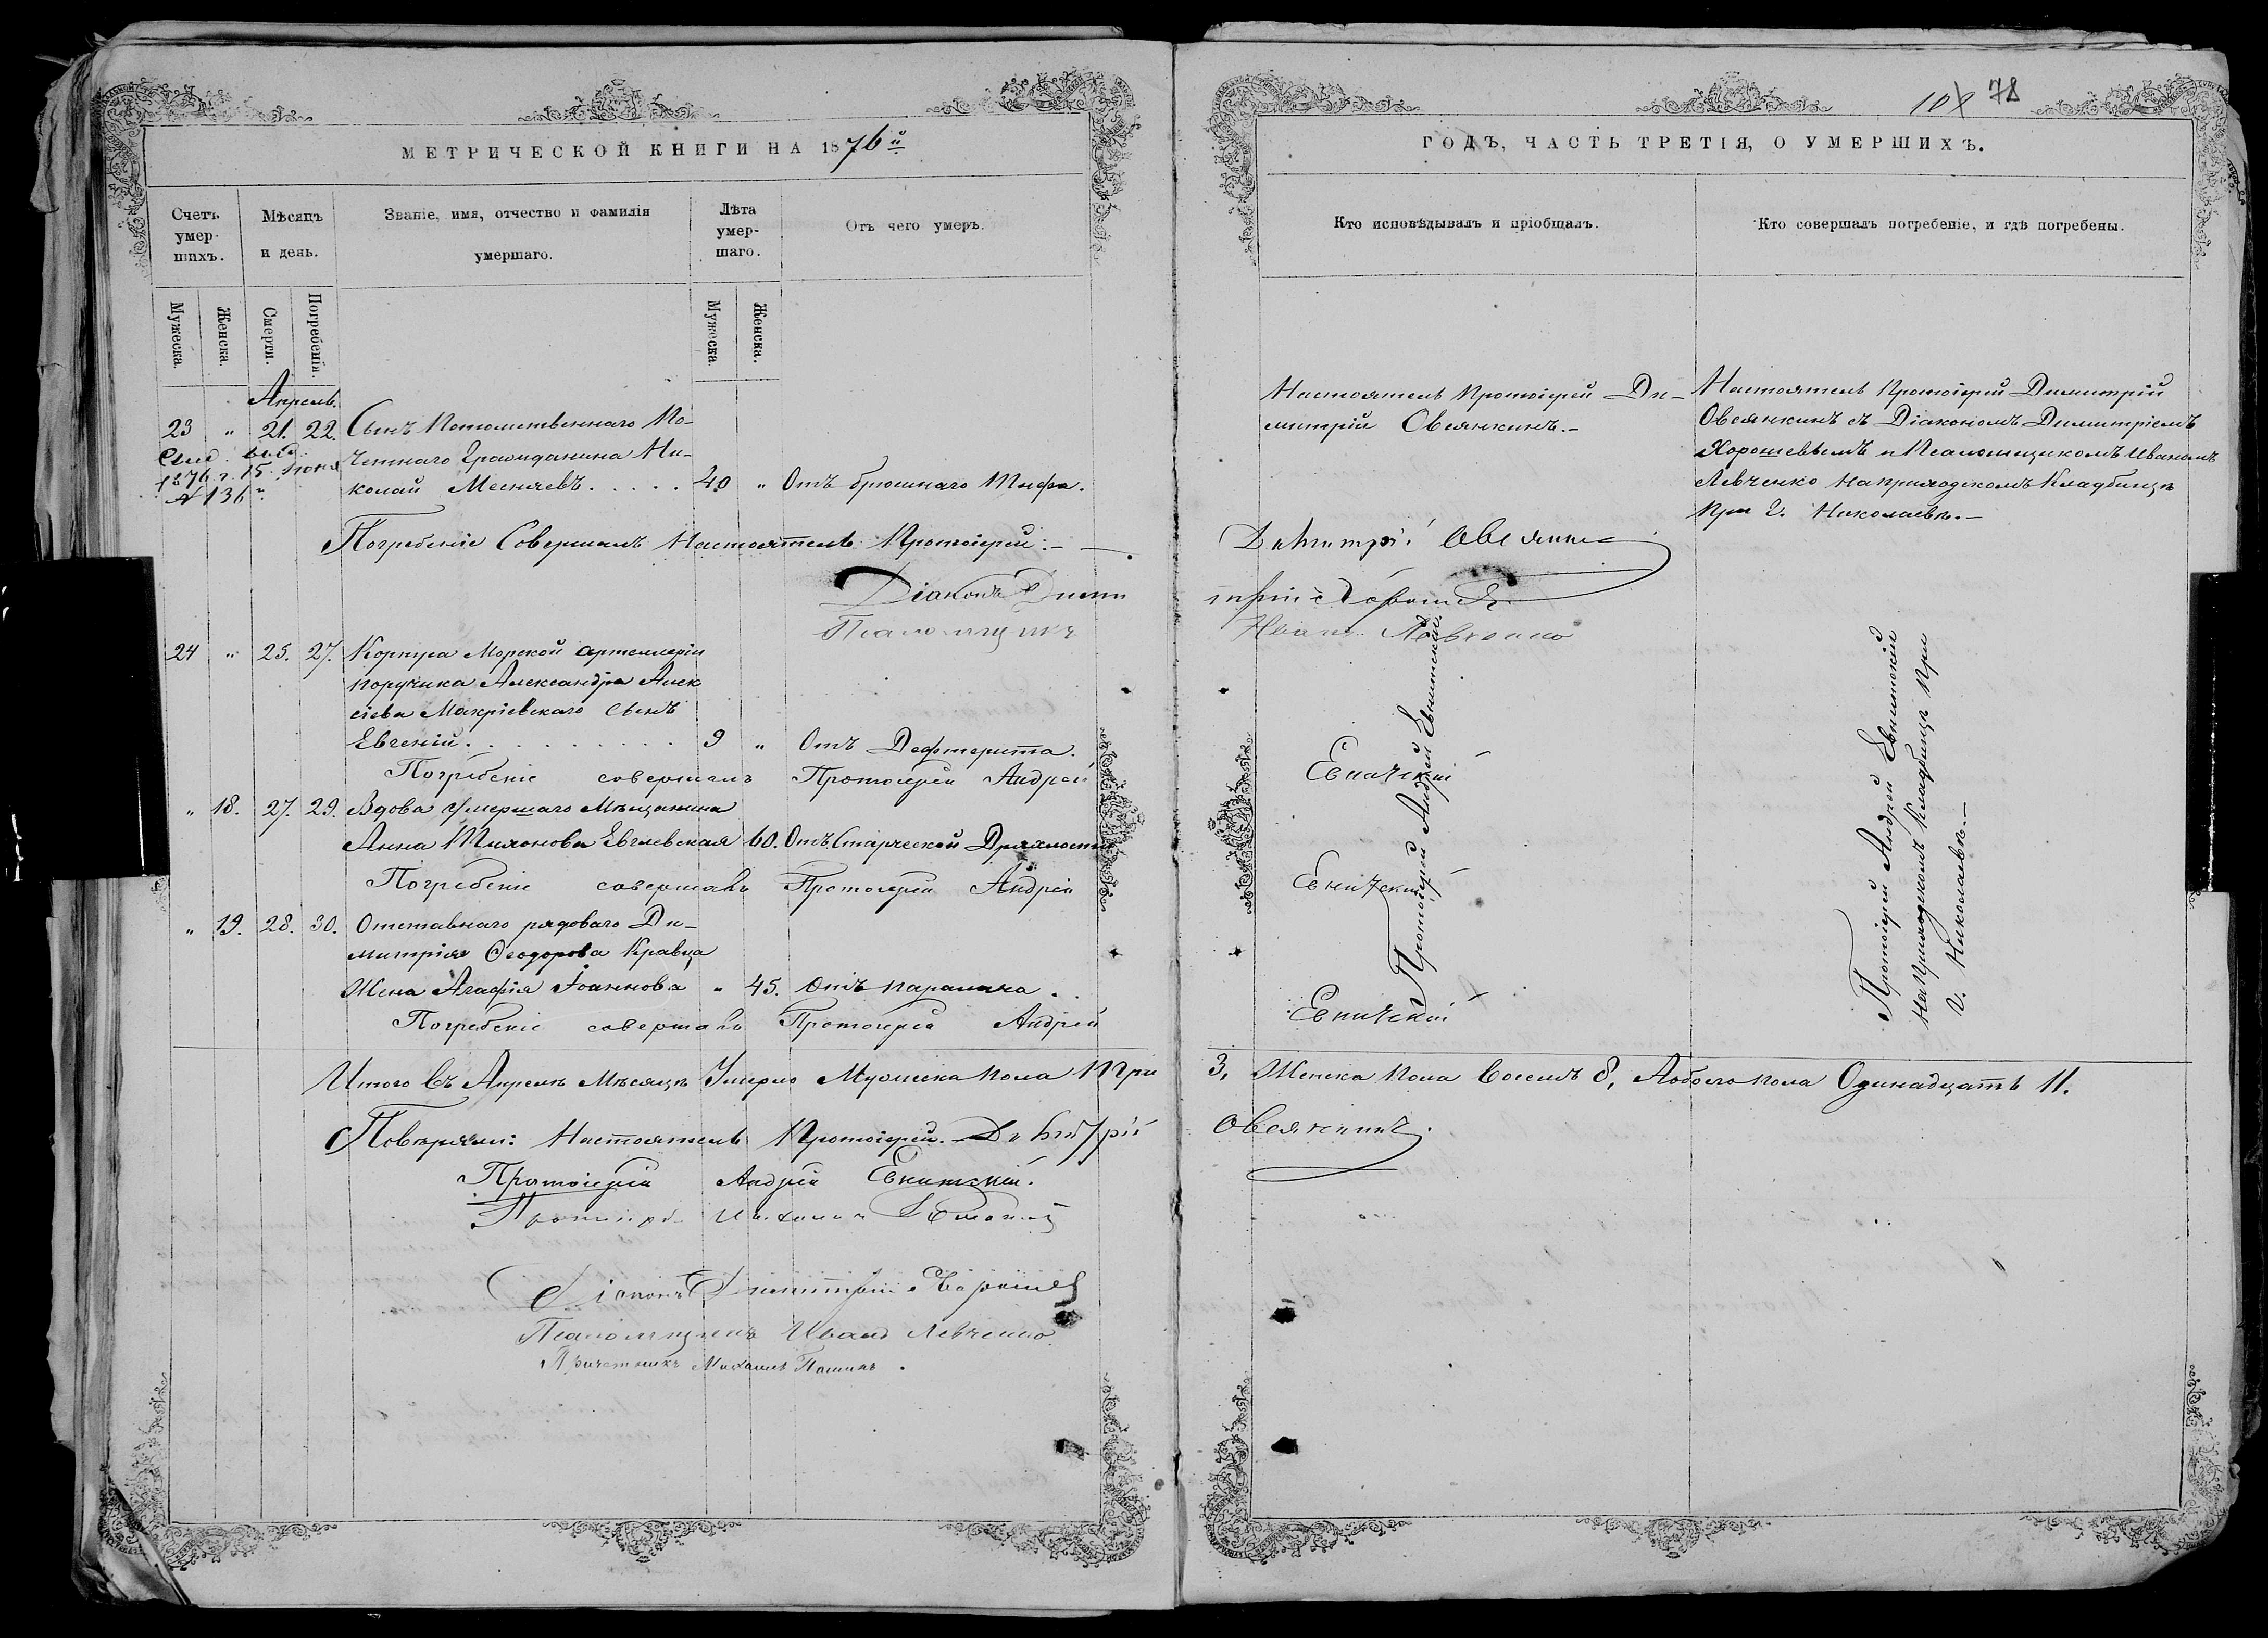 МЕТРИЧЕСКОЙ КНИГИ НА 1876й
Счетъ умер-шихъ.
Мѣсяцъ и день.
Званіе, имя, отчество и фамилія умершаго.
Лѣта умер-шаго.
Отъ чего умеръ.
Мужеска.
Женска.
Смерти.
Погребенія.
Мужеска
Женска.
Апрель.
23 " 21. 22. Сынъ Потомственнаго По-
четнаго Гражданина Ни-
колай Месняевъ. . . . . 40 " Отъ брюшнаго Тифа.
1876 г. 15
№ 136
Погребеніе Совершалъ Настоятель Протоіерей:
Діаконъ Дими
Псаломщикъ
24 " 25. 27. Корпуса Морской Артеллеріи
поручика Александра Алек
сіева Макріевскаго сынъ
Евгеній. . . . . . . . . 9 " Отъ Дефтерита.
Погребеніе совершалъ Протоіерей Андрей
" 18. 27. 29. Вдова умершаго Мѣщанина
Анна Тихонова 60. Отъ Старческой Дряхлости
Погребеніе совершалъ Протоіерей Андрей
" 19. 28. 30. Отставнаго рядоваго Ди-
митрія Ѳеодорова Кравца
Жена Агафія Іоаннова " 45. Отъ паралича.
Погребеніе совершалъ Протоіерей Андрей
Итого въ Апрелѣ Мѣсяцѣ Умерло Мужеска пола три
Повѣряли: Настоятель Протоіерей Димитрій
Протоіерей Андрей
Діаконъ Димитрій Хорошев
Псаломщикъ Иванъ Левченко
Причетникъ Михаилъ
108 78
ГОДЪ, ЧАСТЬ ТРЕТІЯ, О УМЕРШИХЪ.
Кто исповѣдывалъ и пріобщалъ.
Кто совершалъ погребеніе, и гдѣ погребены.
Настоятель Протоіерей Ди-
митрій Овсянкинъ.-
Настоятель Протоіерей Димитрій
Овсянкинъ съ Діакономъ Димитріемъ
Хорошевымъ и Псаломщикомъ Иваномъ
Левченко на приходскомъ Кладбищѣ
При г. Николаевѣ.-
Димитрій Овсянкин
трій Хорошев
Иванъ Левченко
Протоіерей Андрей
Протоіерей Андрей
На Приходскомъ Кладбищѣ При
г. Николаевѣ.-
3, Женска пола восемь 8, Aобоего пола Одинадцать 11.
Овсянкинъ.